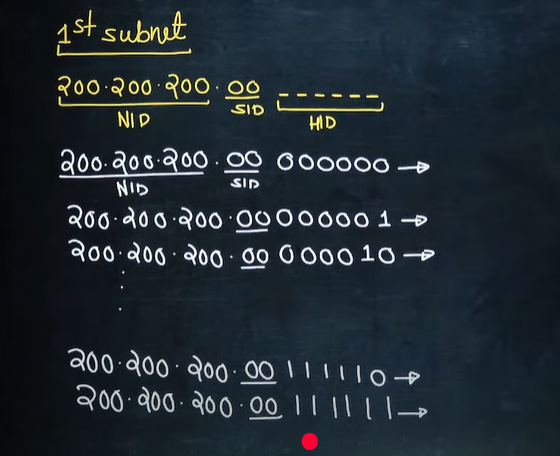 1st subnet
200.200.200.00 _ _ _ _ _ _
NID SID HID
200.200.200.00 000000 →
NID SID
200.200.200.00000001 →
200.200.200.00 000010 →
200.200.200.00 111110 →
200.200.200.00 111111 →